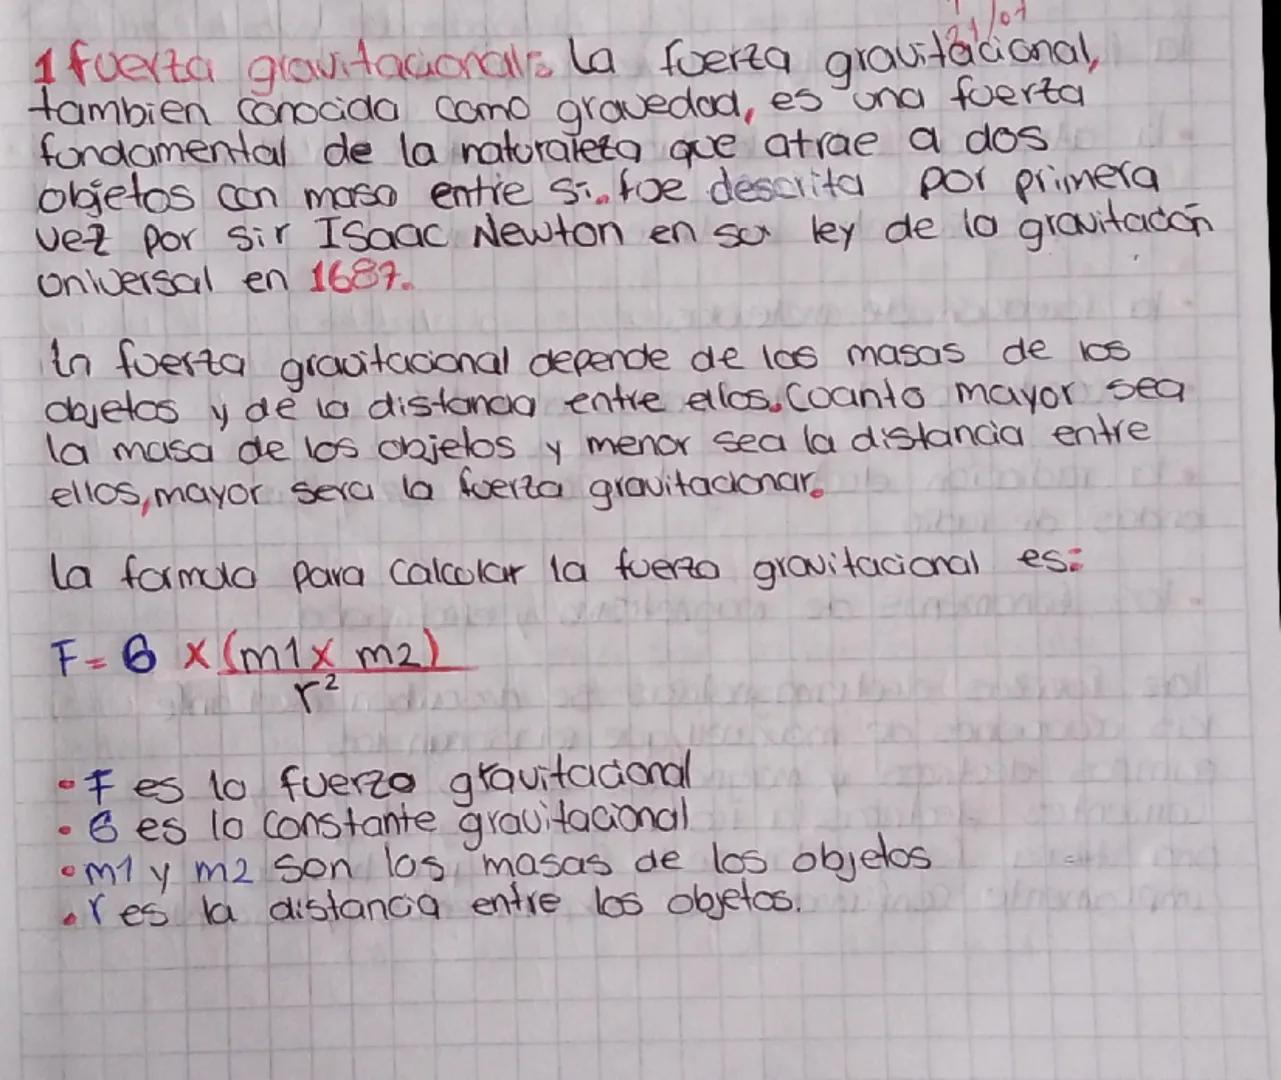 21/01
1 fuerza gravitacional: La fuerza gravitacional,
tambien conocida como gravedad, es una fuerza
fundamental de la naturaleza que atrae a dos
objetos con masa entre si. fue descrita por primera
vez por sir Isaac Newton en su ley de la gravitación
universal en 1687.
la fuerza gravitacional depende de las masas de los
objetos y de la distancia entre ellos. Cuanto mayor sea
la masa de los objetos y menor sea la distancia entre
ellos, mayor sera la fuerza gravitacionar.
La formula para calcular la fuerza gravitacional es:
F = G x (m1 x m2)
r²
• F es la fuerza gravitacional
• G es la constante gravitacional
• m1 y m2 son las masas de los objetos
• r es la distancia entre los objetos.